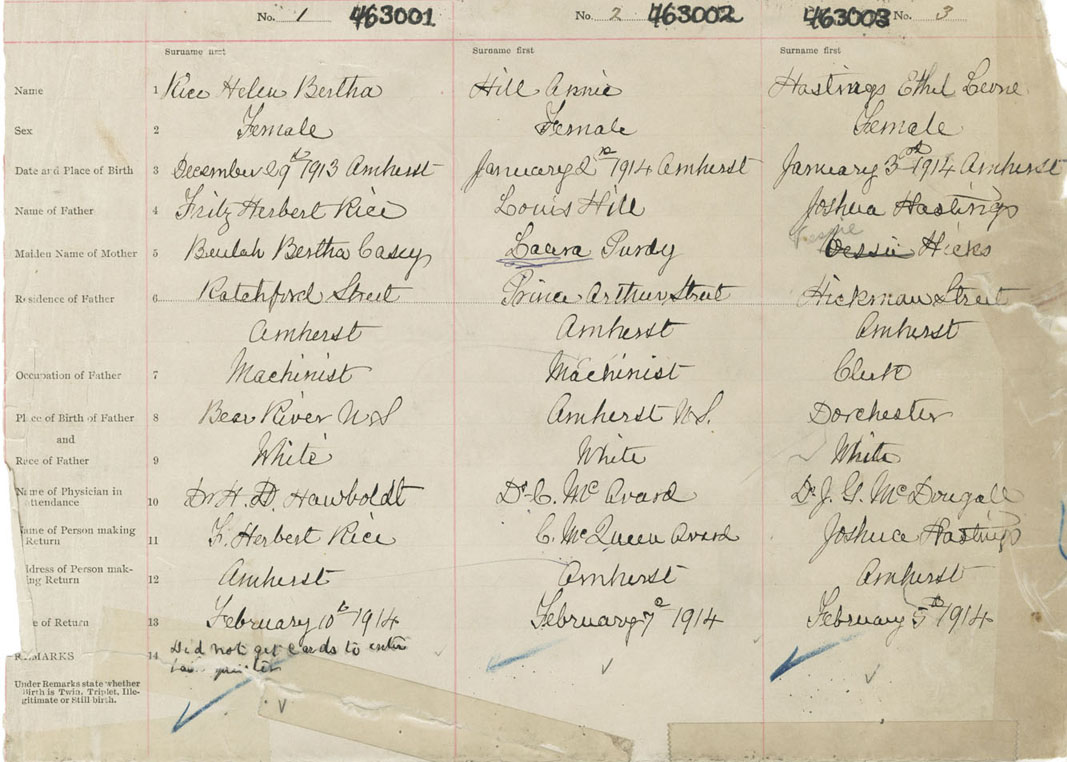 No. 1 463001 No. 2 463002 463003 No. 3
Surname first Surname first Surname first
Name 1 Rice Helen Bertha Hill Annie Hastings Ethel Leone
Sex 2 Female Female Female
Date and Place of Birth 3 December 29th 1913 Amherst January 2nd 1914 Amherst January 3rd 1914 Amherst
Name of Father 4 Fritz Herbert Rice Louis Hill Joshua Hastings
Maiden Name of Mother 5 Beulah Bertha Casey Laura Purdy Hicks
Residence of Father 6 Ratchford Street Prince Arthur Street Hickman Street
Amherst Amherst Amherst
Occupation of Father 7 Machinist Machinist Clerk
Place of Birth of Father 8 Bear River N.S Amherst N.S. Dorchester
and
Race of Father 9 White White White
Name of Physician in
attendance 10 Dr H. D. Hawboldt Dr C. Mc Avard Dr J. G. McDougall
Name of Person making
Return 11 F. Herbert Rice C. McQueen Avard Joshua Hastings
Address of Person mak-
ing Return 12 Amherst Amherst Amherst
e of Return 13 February 10th 1914 February 7th 1914 February 5th 1914
REMARKS 14 Did not get cards to enter
Under Remarks state whether
Birth is Twin, Triplet, Ille-
gitimate or Still-birth.